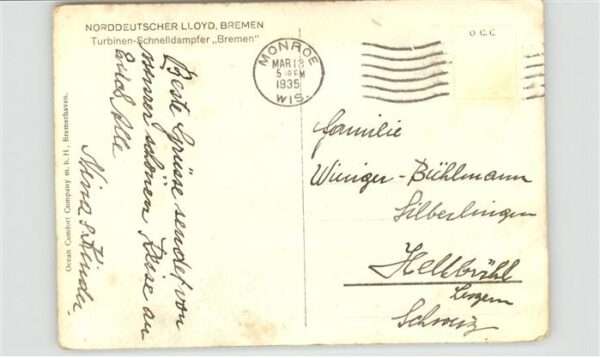 NORDDEUTSCHER LLOYD, BREMEN
Turbinen-Schnelldampfer „Bremen"
Ocean Comfort Company m. b. H., Bremerhaven.
Beste Grüsse sendet von
unserer schönen Reise an
Euch Alle
Mina & Kinder.
MONROE
MAR 13
5 PM
1935
WIS.
O.C.C.
Familie
Winiger-Bühlmann
Silberlingen
Hellbühl
Luzern
Schweiz